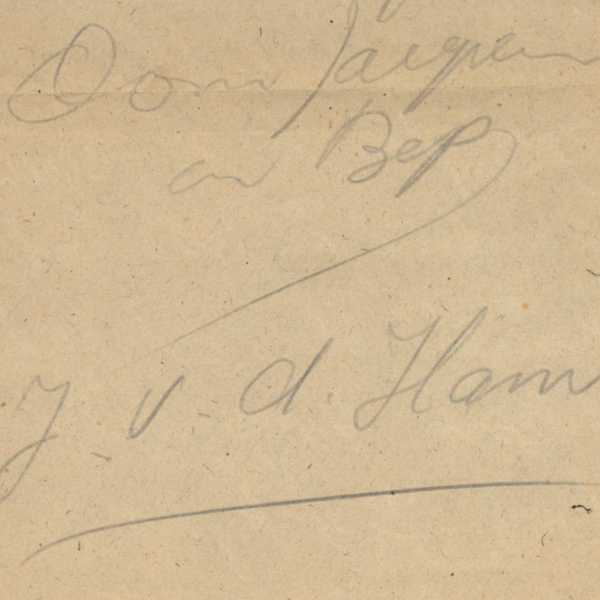 Oom Jacques
en Bep
J. v. d. Ham